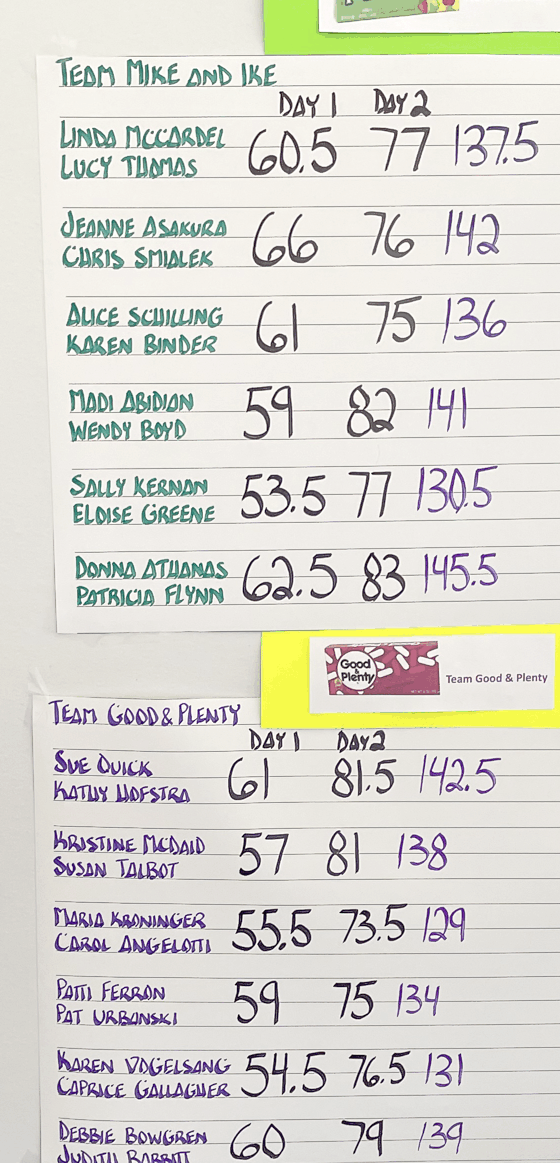 TEAM MIKE AND IKE
DAY 1 DAY 2
LINDA MCCARDEL 60.5 77 137.5
LUCY THOMAS
JEANNE ASAKURA 66 76 142
CHRIS SMIALEK
ALICE SCHILLING 61 75 136
KAREN BINDER
MADI ABIDIAN 59 82 141
WENDY BOYD
SALLY KERNAN 53.5 77 130.5
ELOISE GREENE
DONNA ATHANAS 62.5 83 145.5
PATRICIA FLYNN
Good & Plenty
Team Good & Plenty
TEAM GOOD & PLENTY
DAY 1 DAY 2
SUE QUICK 61 81.5 142.5
KATHY HOFSTRA
KRISTINE MCDAID 57 81 138
SUSAN TALBOT
MARIA KRONINGER 55.5 73.5 129
CAROL ANGELOTTI
PATTI FERRON 59 75 134
PAT URBANSKI
KAREN VOGELSANG 54.5 76.5 131
CAPRICE GALLAGHER
DEBBIE BOWGREN 60 79 139
JUDITH BABBITT